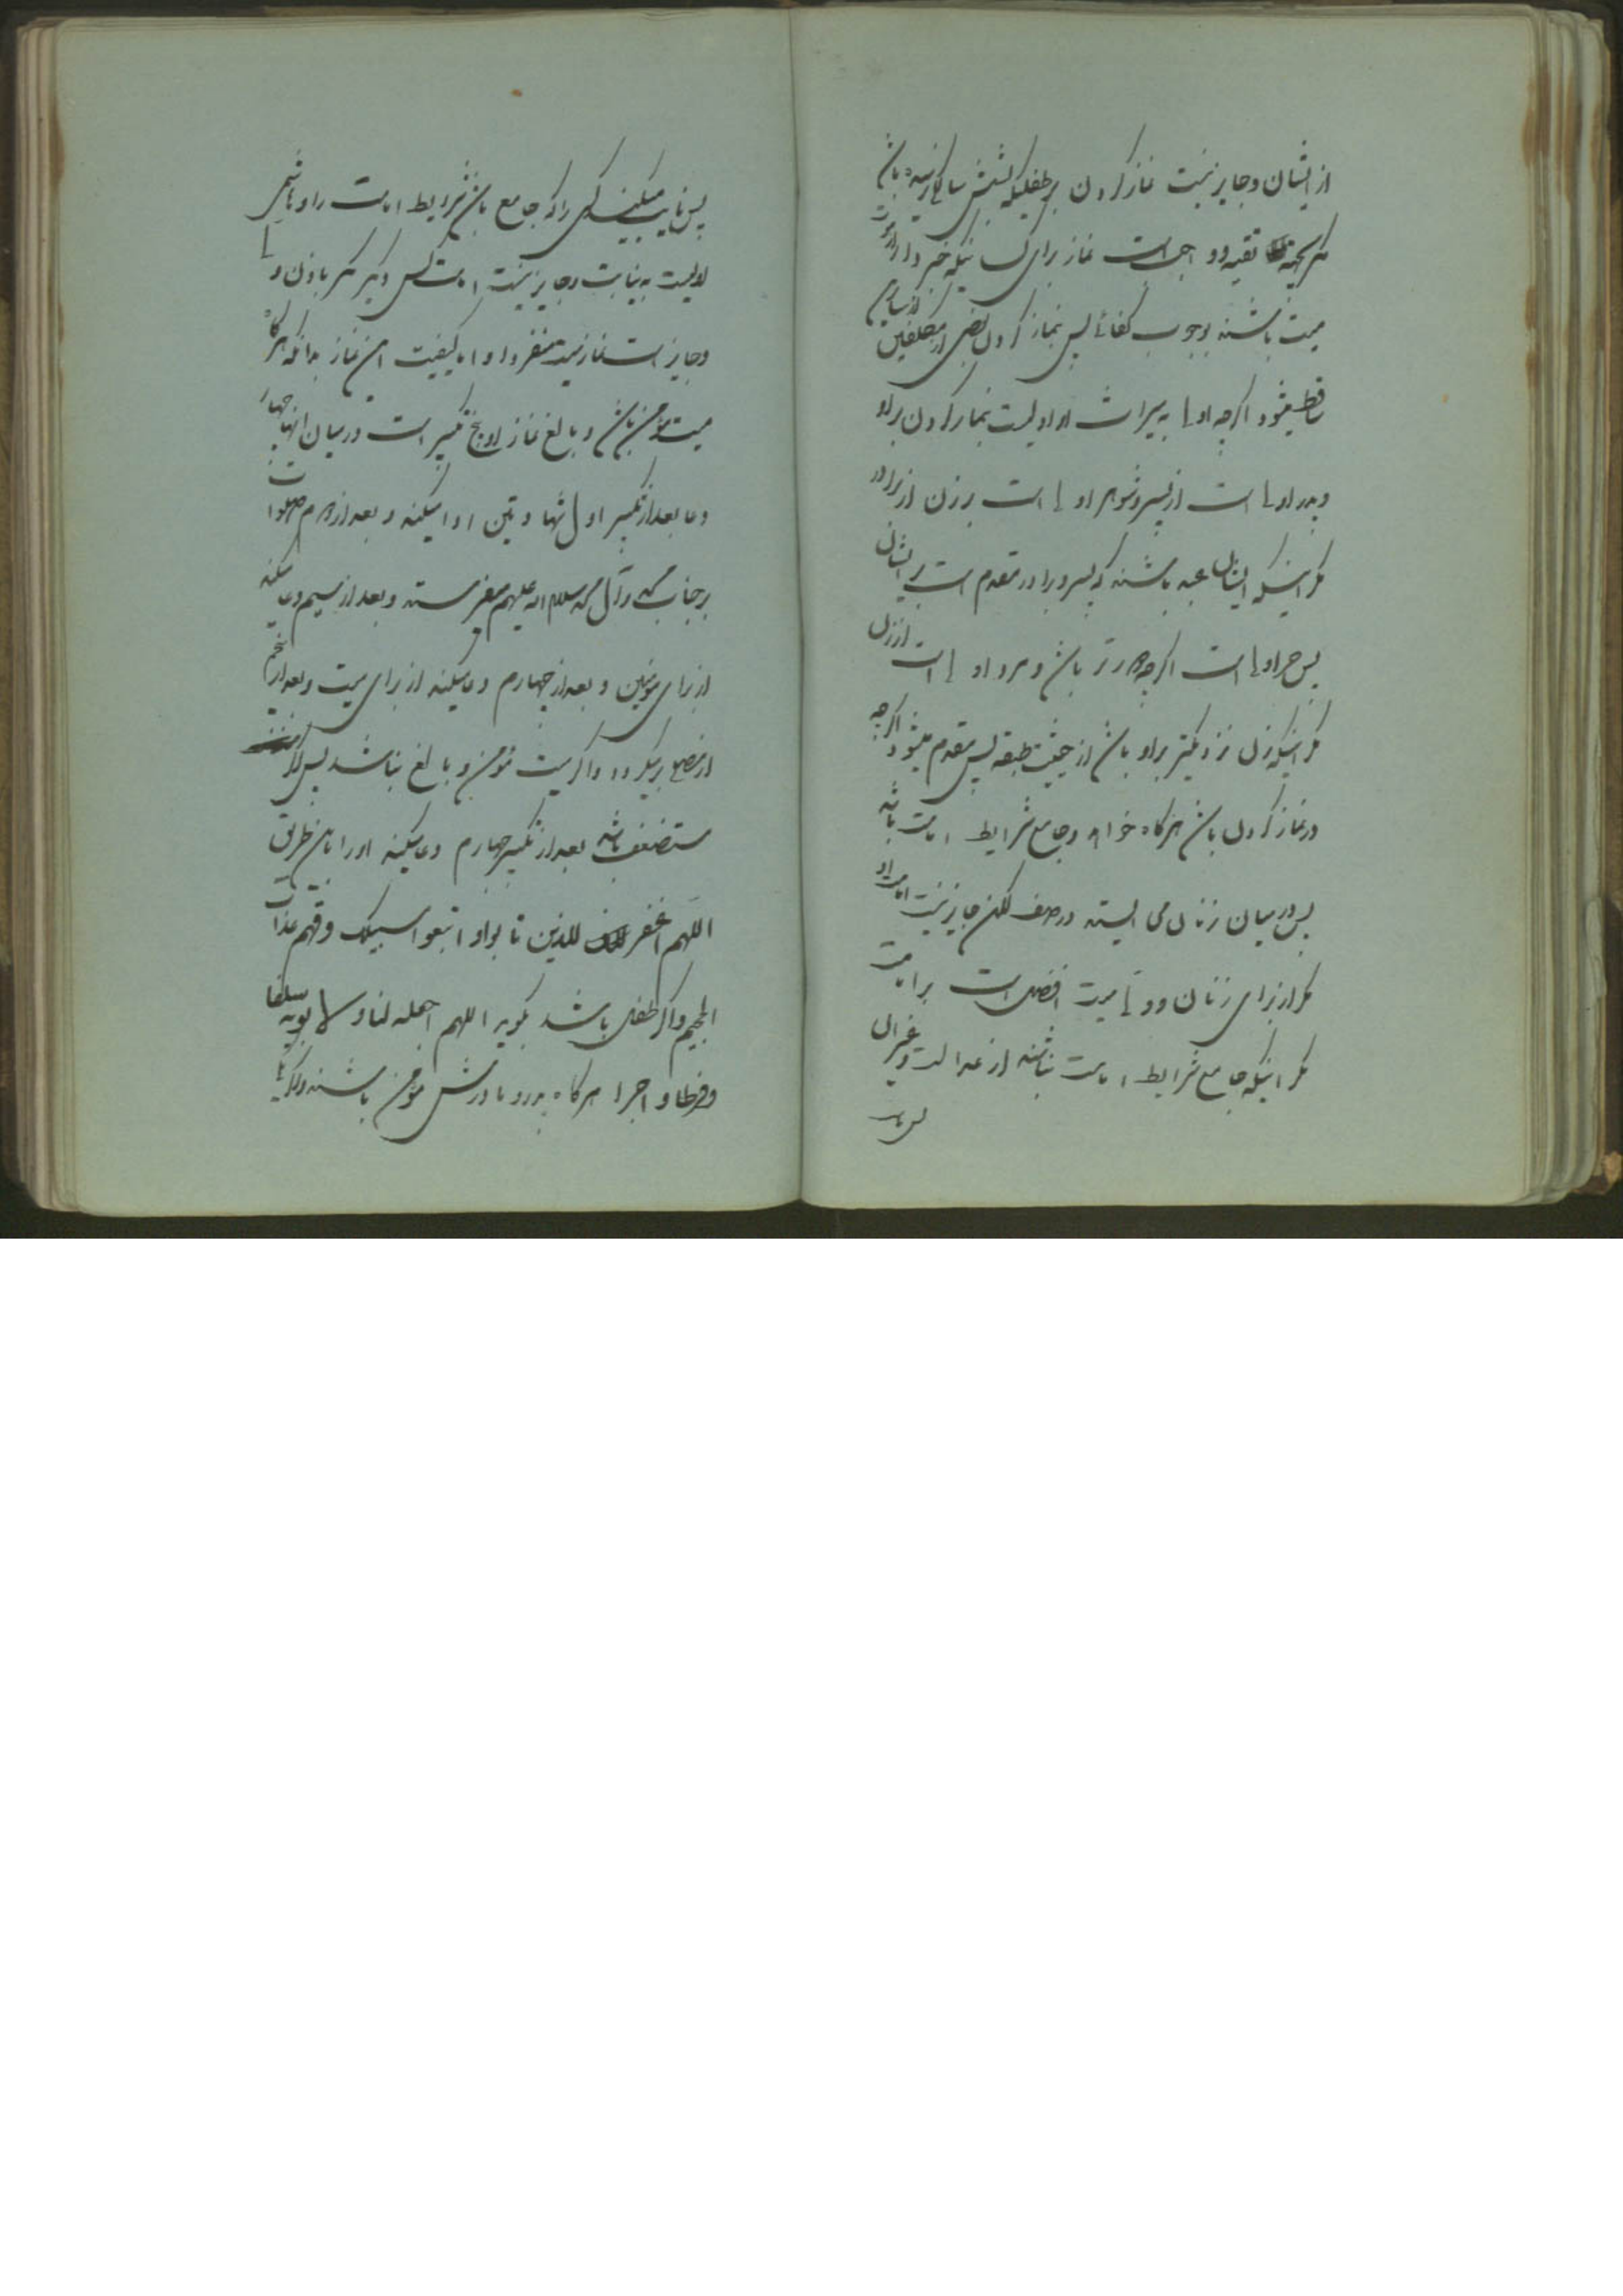 از ایشان و جایز نیست نماز کردن بر طفلیکه بشش سالگی نرسیده باشد
مگر بجهة تقیه و واجب است نماز برای کسانیکه خبردار از موت
میت باشند بوجوب کفائے پس بنماز کردن بعضی از مکلفین از سایرین
ساقط میشود اگرچه اولے به میراث او اولیست بنماز کردن بر او
و پدر اولے است از پسر و شوهر اولے است بر زن از برادر
مگر اینکه ایشان عبد باشند که پسر و برادر مقدم است بر ایشان
پس حر اولے است اگرچه دورتر باشد و مرد اولے است از زن
مگر اینکه زن نزدیکتر بر او باشد از حیثیت طبقه پس مقدم میشود اگرچه
در نماز کردن باشد هرگاه خواهد و جامع شرایط امامت باشد
پس در میان زنان می ایستد در صف لکن جایز نیست امامت او
مگر از برای زنان و ولے میت افضل است بر امامت
مگر اینکه جامع شرایط امامت نباشد از عدالت و غیر ان
پس نایب
پس نایب میکند کسی را که جامع باشد شرایط امامت را و هاشمی
اولیست به نیابت و جایز نیست امامت کس دیگر مگر باذن ولے
و جایز است نماز میت منفردا و اما کیفیت این نماز بدانکه هرگاه
میت مؤمن باشد و بالغ نماز او پنج تکبیر است در میان انها چهار
دعا بعد از تکبیر اول شهادتین ادا میکند و بعد از دوم صلوات
بر جناب محمد و آل محمد سلام الله علیهم میفرستد و بعد از سیم دعا میکند
از برای مؤمنین و بعد از چهارم دعا میکند از برای میت و بعد از پنجم
منصرف میگردد و اگر میت مؤمن و بالغ نباشد پس اگر
مستضعف باشد بعد از تکبیر چهارم دعا میکند او را باین طریق
اللهم اغفر للذین تابوا و اتبعوا سبیلک و قهم عذاب
الجحیم و اگر طفل باشد بگوید اللهم اجعله لنا و لابویه سلفا
و فرطا و اجرا هرگاه پدر و مادرش مؤمن باشند و اگر یکی